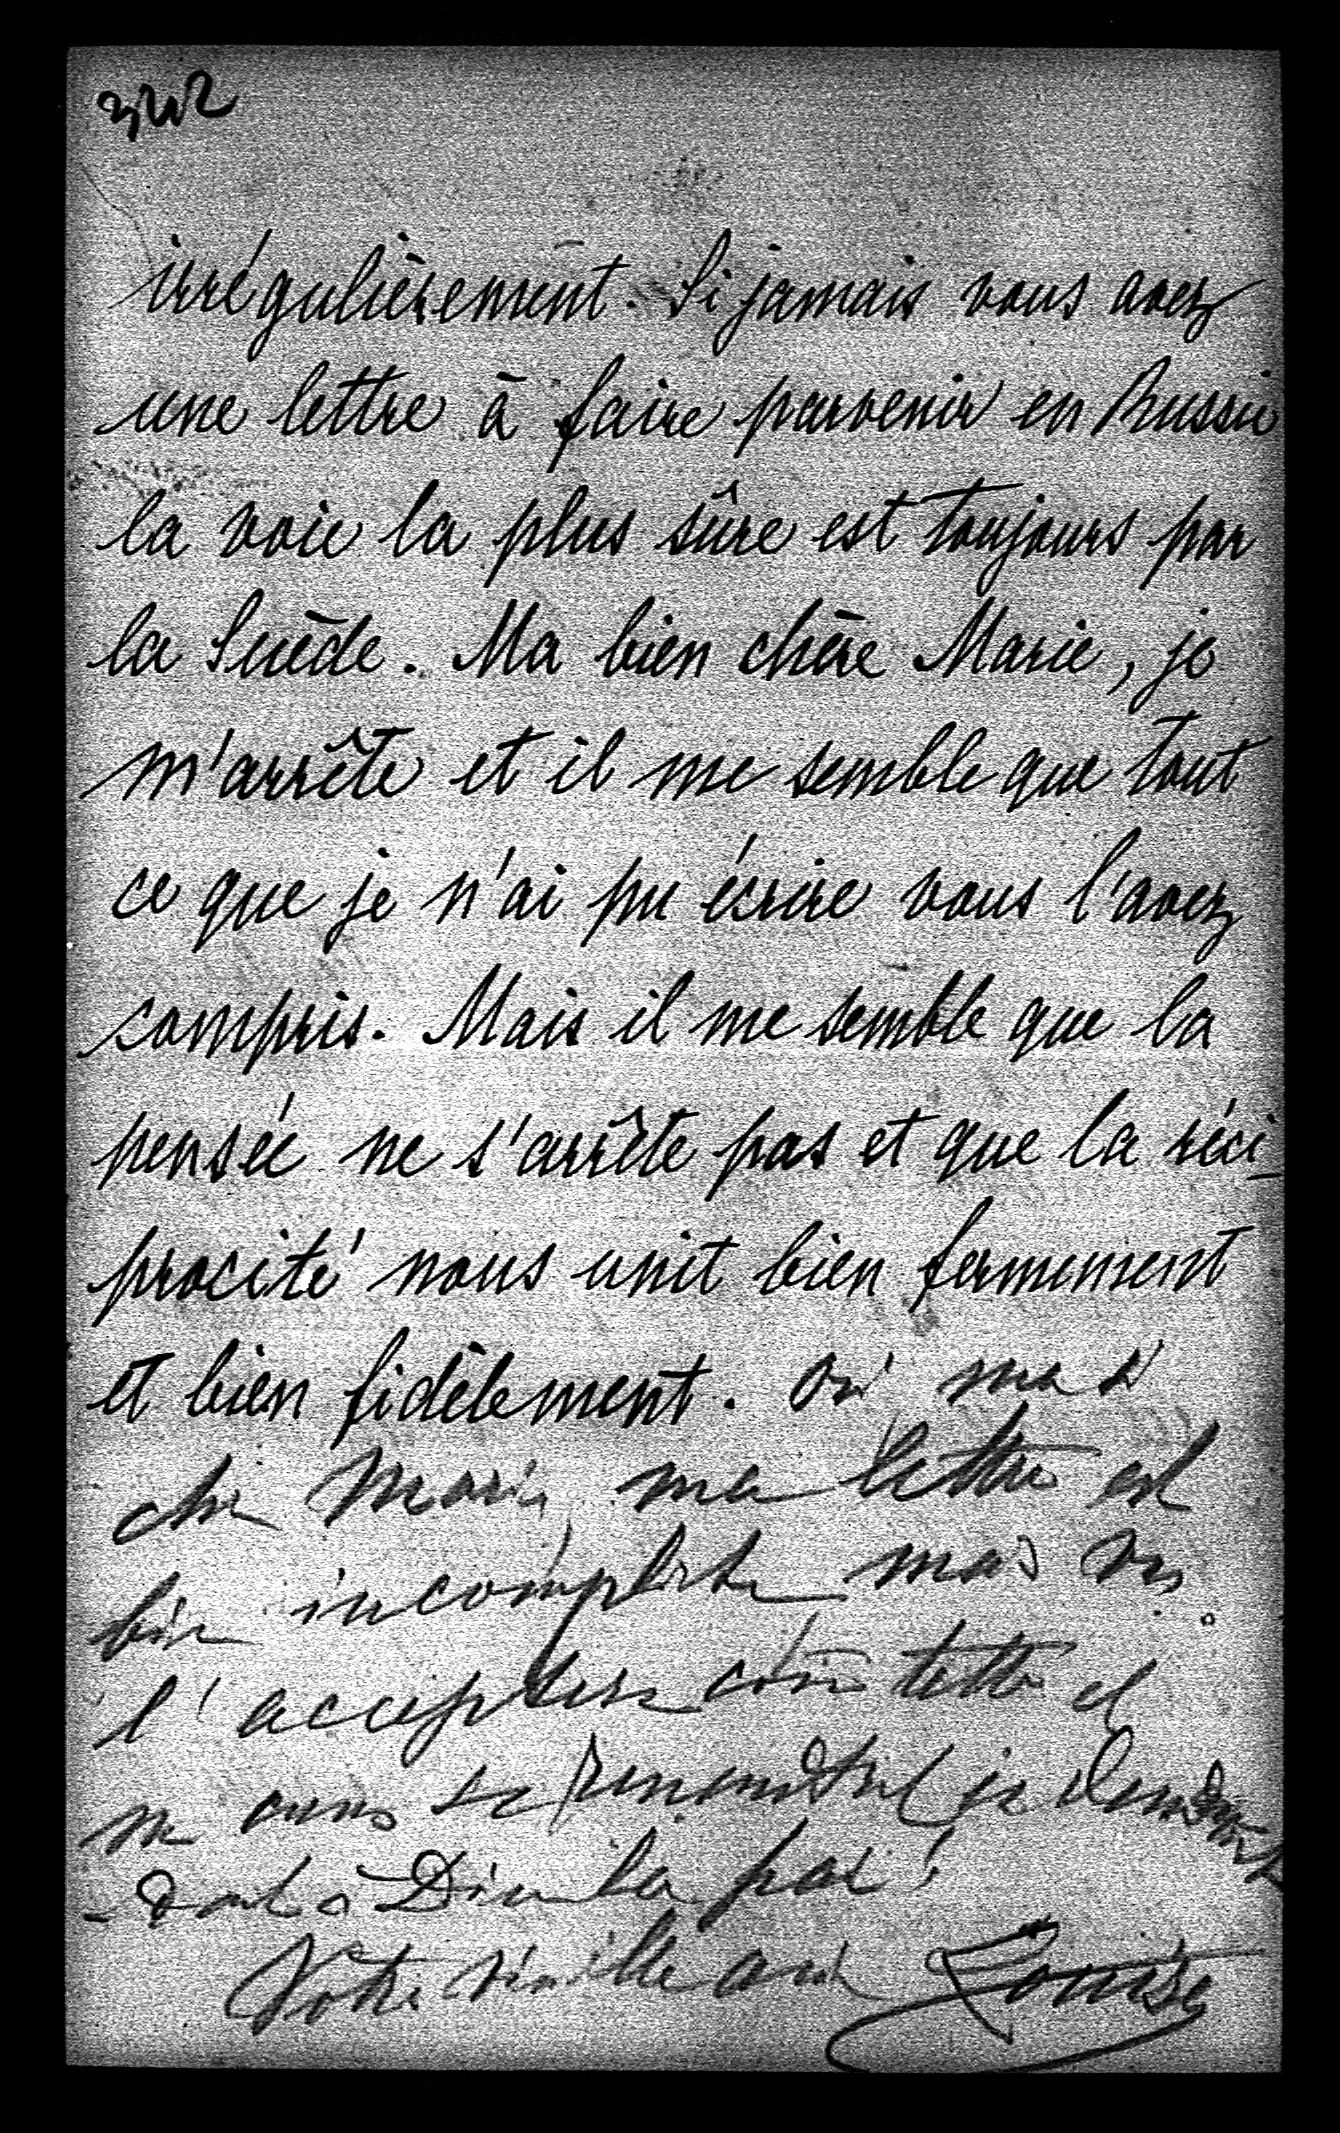 342
irrégulièrement. Si jamais vous avez
une lettre à faire parvenir en Russie
la voie la plus sûre est toujours par
la Suède. Ma bien chère Marie, je
m'arrête et il me semble que tout
ce que je n'ai pu écrire vous l'avez
compris. Mais il me semble que la
pensée ne s'arrête pas et que la réci-
procité nous unit bien fermement
et bien fidèlement. Oui ma
chè Marie, ma lettre est
bien incomplète mais vs
l'accepterez com telle et
ne je
Dieu la paix!
Votre vieille amie Louise